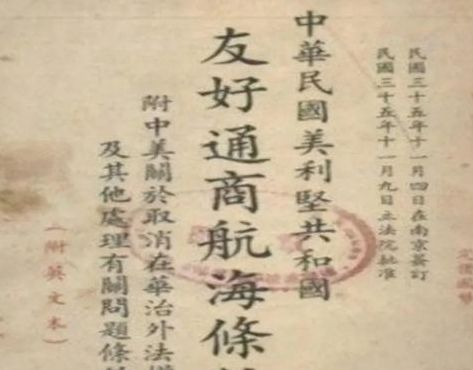 民國三十五年十一月四日在南京簽訂
民國三十五年十一月九日立法院批准
中華民國美利堅共和國
友好通商航海條
附中美關於取消在華治外法權
及其他處理有關問題條
(附英文本)